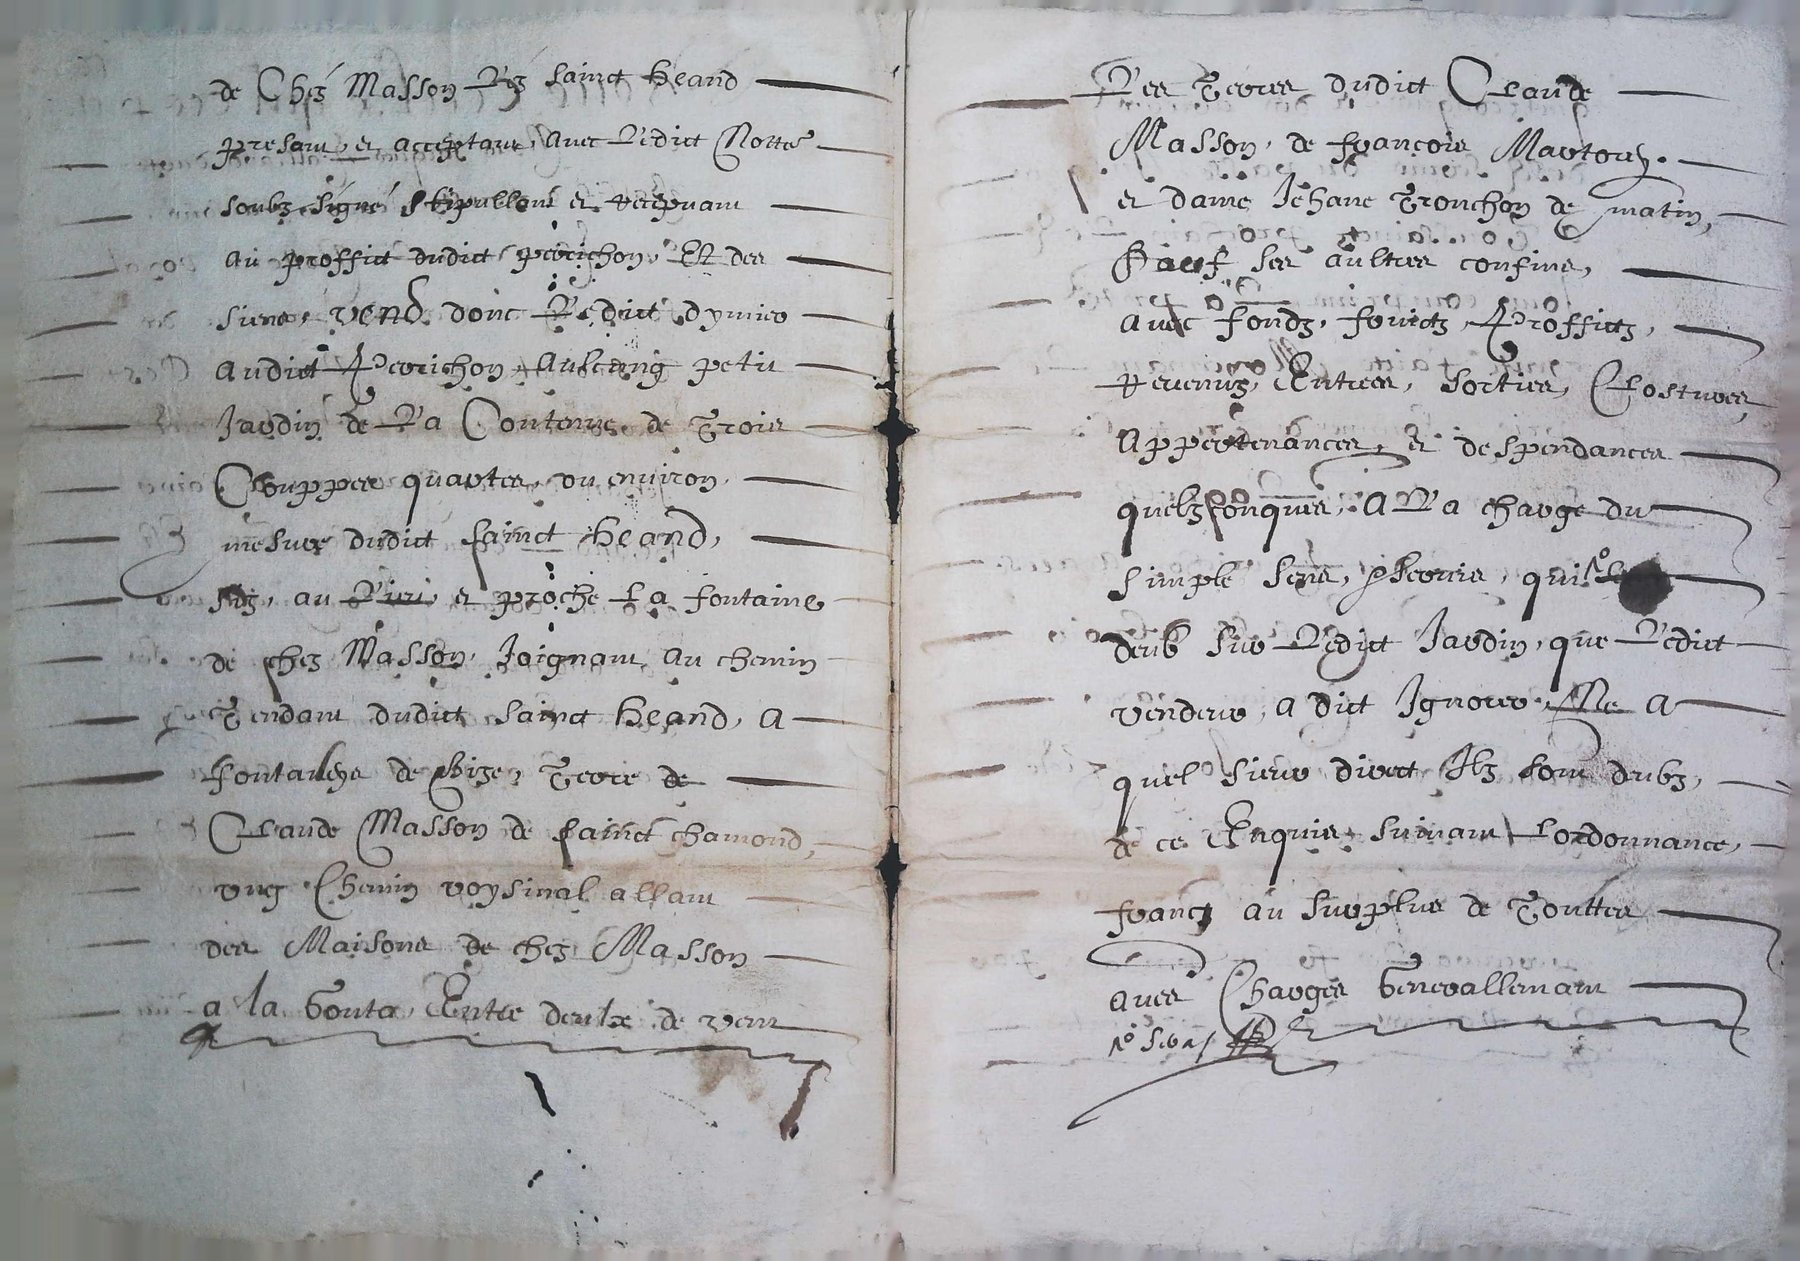 de Chez Masson lez sainct heand
presant et acceptant, avec ledict Notte
soubz signé stipullant et recepvant
au proffict dudict perichon, Et des
siens, vend donc ledict dymier
audict Perichon Aulcung petit
Jardin de la Contenue de Trois
Couppes quartes, ou environ,
mesure dudict sainct heand,
sis, au lieu, et proche la fontaine
de chez Masson, Joignant au chemin
Tendant dudict sainct heand, A
de bize, Terre de
Claude Masson de sainct chamond,
ung Chemin voysinal allant
des Maisons de chez Masson
a la Entre deulx de vent
Les Terres dudict Claude
Masson, de françois
et dame Jehane Tronchon de matin,
Sauf ses aultres confins,
avec fondz, fruictz, Proffictz,
revenuz, Entrees, sorties, Clostures,
Appertenances, et despendances
quelzconques, A la charge du
simple sens, qui
deub sur ledict Jardin, que ledict
vendeur, a dict Ignorer, Ne A
quel sieur direct Ilz sont deubz,
de ce Enquis suivant Lordonnance,
franc au surplus de Touttes
aues Charges Generallemant